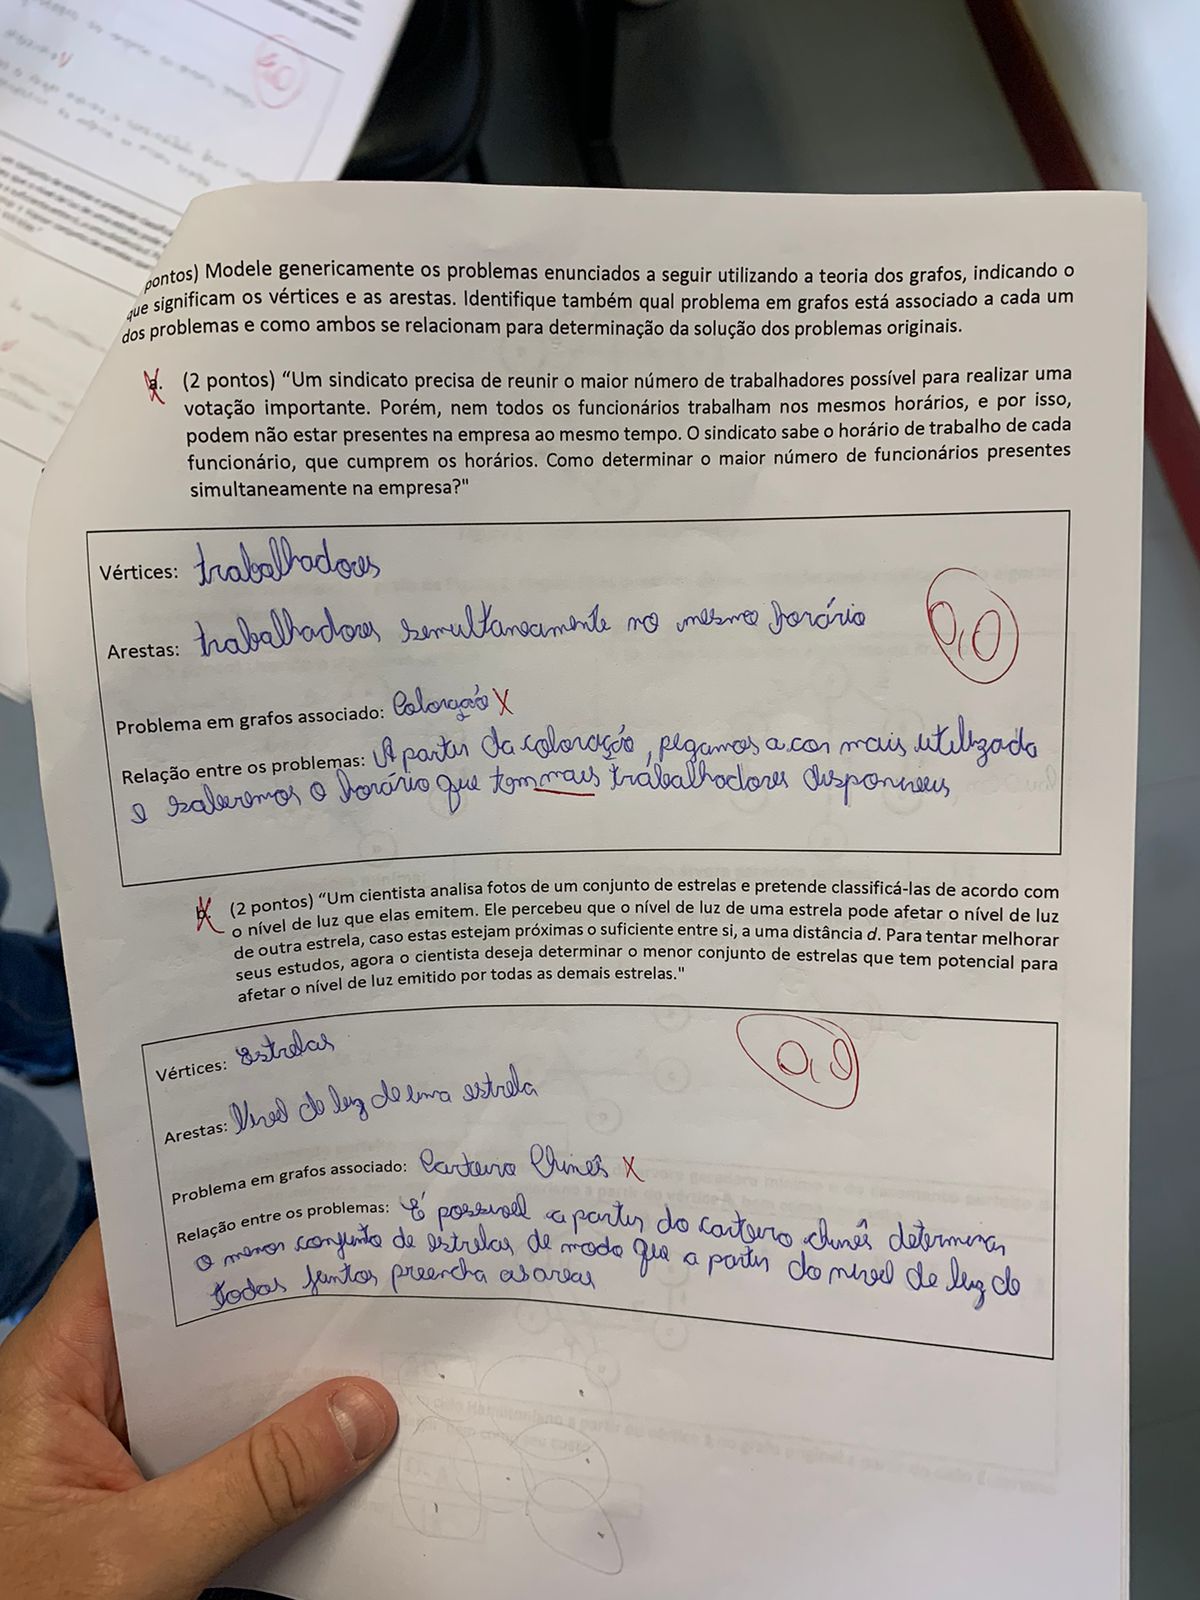 pontos) Modele genericamente os problemas enunciados a seguir utilizando a teoria dos grafos, indicando o
que significam os vértices e as arestas. Identifique também qual problema em grafos está associado a cada um
dos problemas e como ambos se relacionam para determinação da solução dos problemas originais.
a. (2 pontos) “Um sindicato precisa de reunir o maior número de trabalhadores possível para realizar uma
votação importante. Porém, nem todos os funcionários trabalham nos mesmos horários, e por isso,
podem não estar presentes na empresa ao mesmo tempo. O sindicato sabe o horário de trabalho de cada
funcionário, que cumprem os horários. Como determinar o maior número de funcionários presentes
simultaneamente na empresa?"
Vértices: trabalhadores
Arestas: trabalhadores semultaneamente no mesmo horário
0,0
Problema em grafos associado: Coloração X
Relação entre os problemas: A partir da coloração, pegamos a cor mais utilizada
e saberemos o horário que tem mais trabalhadores disponiveis
b. (2 pontos) “Um cientista analisa fotos de um conjunto de estrelas e pretende classificá-las de acordo com
o nível de luz que elas emitem. Ele percebeu que o nível de luz de uma estrela pode afetar o nível de luz
de outra estrela, caso estas estejam próximas o suficiente entre si, a uma distância d. Para tentar melhorar
seus estudos, agora o cientista deseja determinar o menor conjunto de estrelas que tem potencial para
afetar o nível de luz emitido por todas as demais estrelas."
0,0
Vértices: Estrelas
Arestas: Nivel de luz de uma estrela
Problema em grafos associado: Carteiro Chinês X
Relação entre os problemas: É possivel a partir do carteiro chinês determinar
o menor conjunto de estrelas de modo que a partir do nivel de luz de
todas juntas preencha as areas